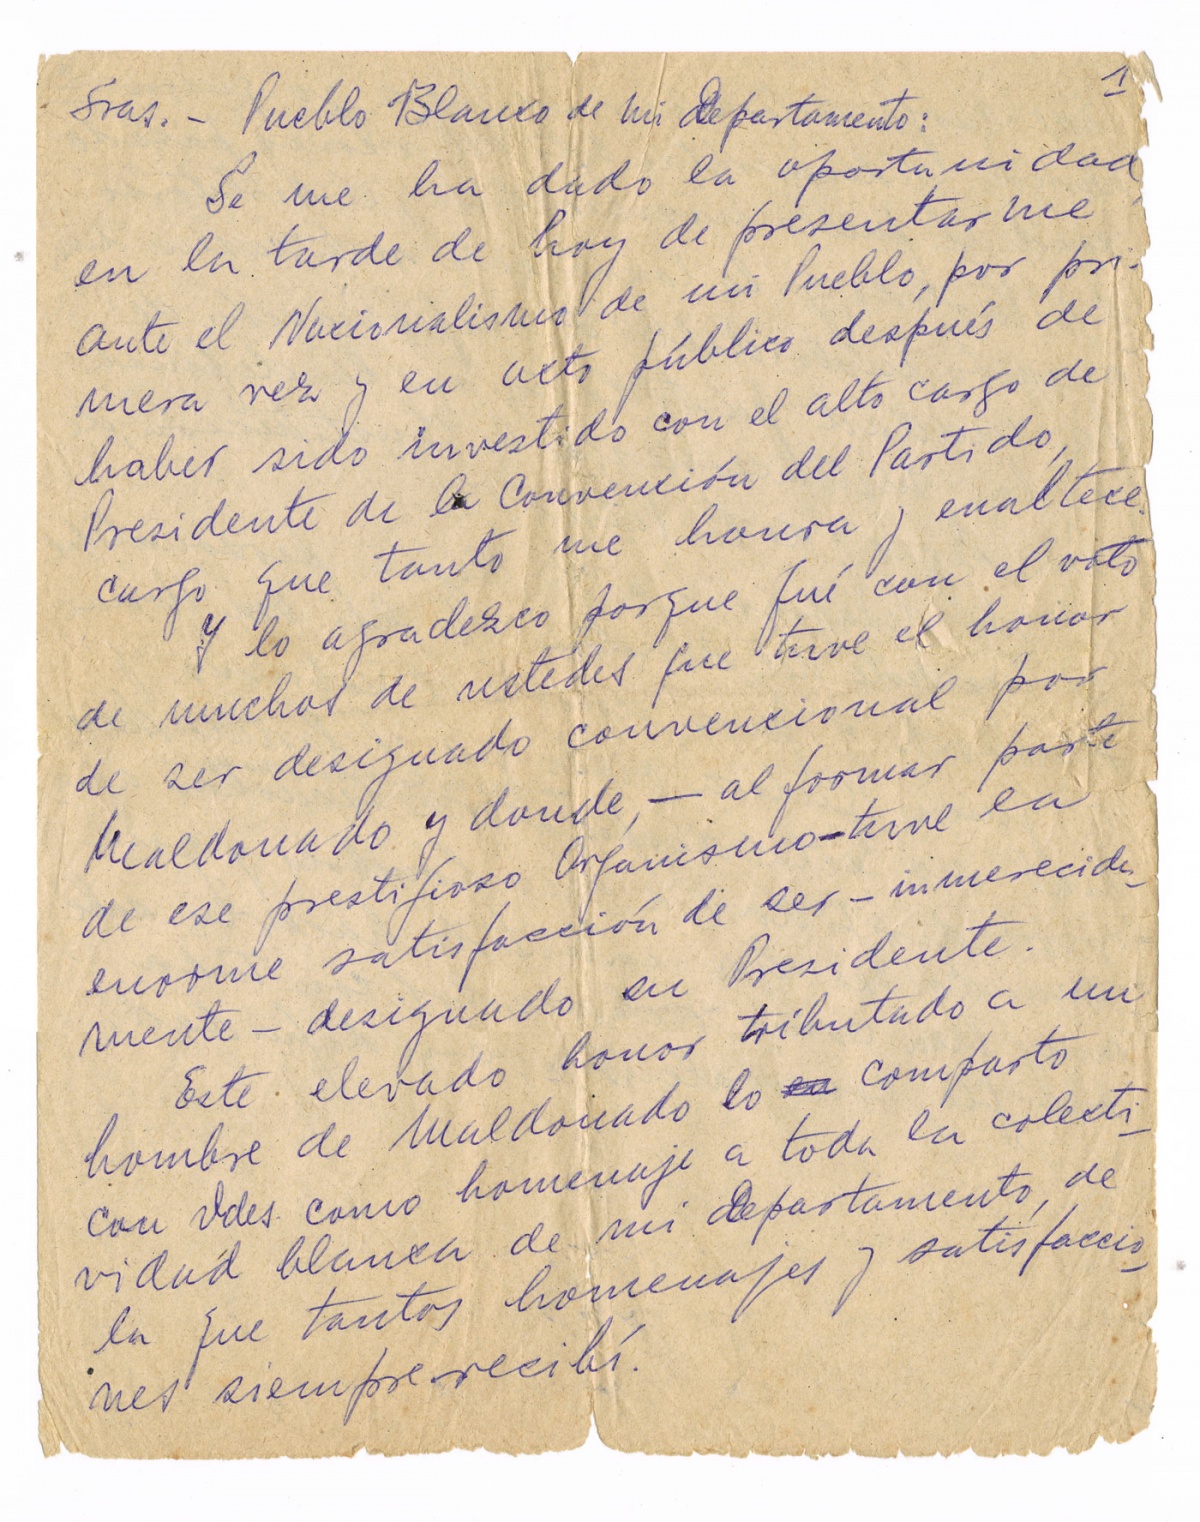 1
Sras. - Pueblo Blanco de mi Departamento:
Se me ha dado la oportunidad,
en la tarde de hoy de presentarme
ante el Nacionalismo de mi Pueblo, por pri-
mera vez y en acto público después de
haber sido investido con el alto cargo de
Presidente de la Convención del Partido,
cargo que tanto me honra y enaltece.
Y lo agradezco porque fué con el voto
de muchos de ustedes que tuve el honor
de ser designado convencional por
Maldonado y donde, - al formar parte
de ese prestigioso Organismo - tuve la
enorme satisfacción de ser - inmerecida-
mente - designado su Presidente.
Este elevado honor tributado a un
hombre de Maldonado lo comparto
con Vdes. como homenaje a toda la colecti-
vidad blanca de mi Departamento, de
la que tantos homenajes y satisfaccio-
nes siempre recibí.